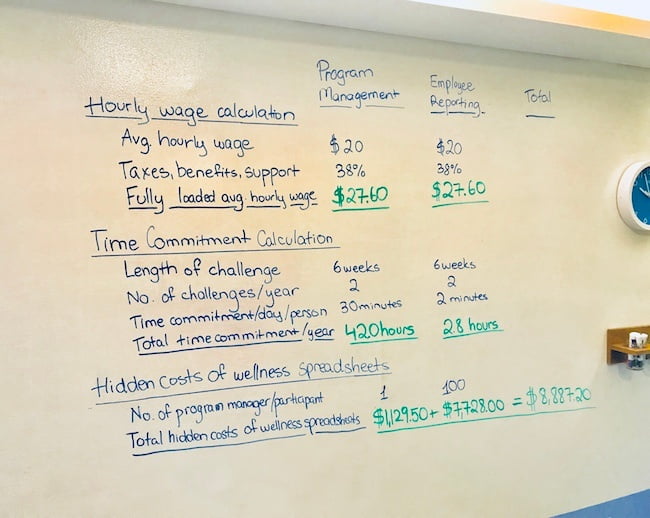 Program Management
Employee Reporting
Total
Hourly wage calculation
Avg. hourly wage $20 $20
Taxes, benefits, support 38% 38%
Fully loaded avg. hourly wage $27.60 $27.60
Time Commitment Calculation
Length of challenge 6 weeks 6 weeks
No. of challenges/year 2 2
Time commitment/day/person 30 minutes 2 minutes
Total time commitment/year 420 hours 28 hours
Hidden costs of wellness spreadsheets
No. of program manager/participant 1 100
Total hidden costs of wellness spreadsheets $1,129.50 + $7,728.00 = $8,887.20